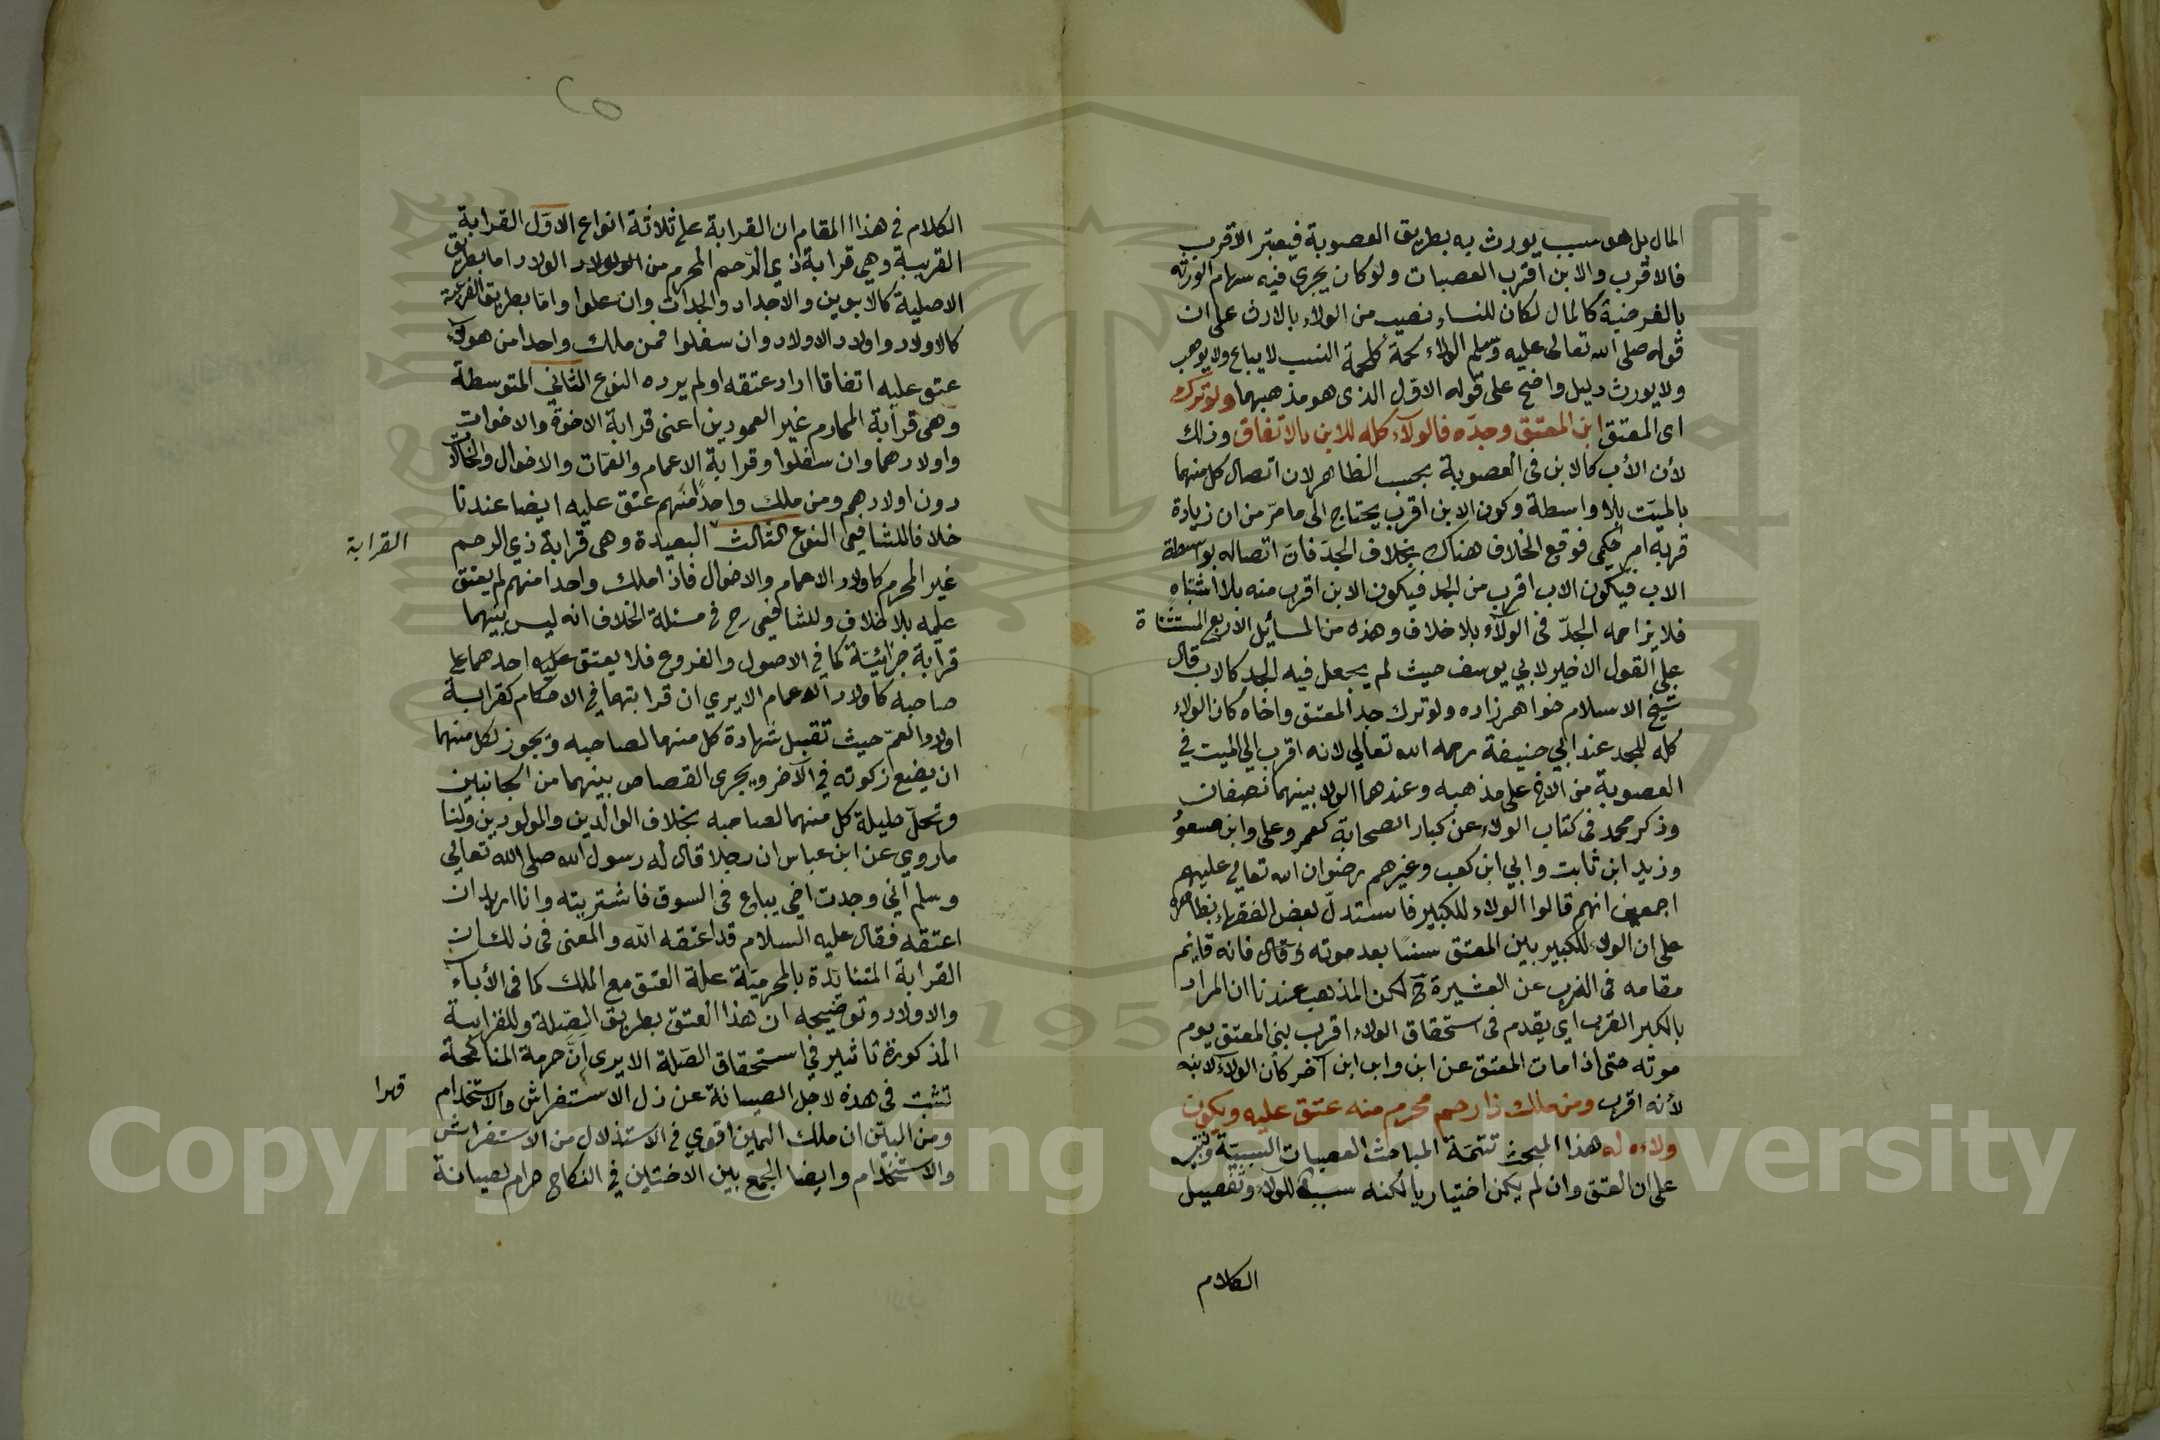 المال بل هو سبب يورث به بطريق العصوبة فيعتبر الأقرب
فالاقرب والابن اقرب العصبات ولو كان يجرى فيه سهام الورثه
بالفرضية كالمال لكان للنساء نصيب من الولاء بالارث على ان
قوله صلى الله تعالى عليه وسلم الولاء لحمة كلحمة النسب لا يباع ولا يوهب
ولا يورث دليل واضح على قوله الاول الذى هو مذهبهما ولو ترك
اى المعتق ابن المعتق وجدّه فالولآء كله للابن بالاتفاق وذلك
لأن الأب كالابن فى العصوبة بحسب الظاهر لان اتصال كل منهما
بالميّت بلا واسطة وكون الابن اقرب يحتاج الى ما مرّ من ان زيادة
قربه امر حكمى فوقع الخلاف هناك بخلاف الجدّ فان اتصاله بواسطة
الاب فيكون الاب اقرب من الجد فيكون الابن اقرب منه بلا اشتباه
فلا يزاحمه الجدّ فى الولآء بلا خلاف وهذه من المسائل الاربع المستثناة
على القول الاخير لابي يوسف حيث لم يجعل فيه الجد كالاب قال
شيخ الاسلام خواهر زاده ولو ترك جد المعتق واخاه كان الولاء
كله للجد عند ابي حنيفة رحمه الله تعالي لانه اقرب الي الميت في
العصوبة من الاخ على مذهبه وعندهما الولاء بينهما نصفان
وذكر محمد فى كتاب الولاء عن كبار الصحابة كعمر وعلى وابن مسعود
وزيد ابن ثابت وابي ابن كعب وغيرهم رضوان الله تعالي عليهم
اجمعين انهم قالوا الولاء للكبير فاستدل بعض الفقهاء بظاهره
على ان الولاء للكبير بين المعتق سنًا بعد موته وقال فانه قايم
مقامه فى الذب عن العشيرة ح لكن المذهب عندنا ان المراد
بالكبر القرب اي يقدم فى استحقاق الولاء اقرب بنى المعتق يوم
موته حتى اذا مات المعتق عن ابن وابن ابن آخر كان الولاء لابنه
لأنه اقرب ومن ملك ذا رحم محرم منه عتق عليه ويكون
ولاءه له هذا المبحث تتمّة المباحث العصبات السببيّة وتنبيه
على ان العتق وان لم يكن اختياريا لكنه سبب للولاء وتفصيل
الكلام
الكلام في هذا المقام ان القرابة على ثلاثة انواع الاوّل القرابة
القريبة وهي قرابة ذي الرّحم المحرم من الولاد الولاد اما بطريق
الاصلية كالابوين والاجداد والجدات وان علوا وامّا بطريق الفرعية
كالاولاد واولاد الاولاد وان سفلوا فمن ملك واحدا من هولاء
عتق عليه اتفاقا اراد عتقه او لم يرده النوع الثاني المتوسطة
وهى قرابة المحارم غير العمودين اعنى قرابة الاخوة والاخوات
واولادهما وان سفلوا وقرابة الاعمام والعمّات والاخوال والخالات
دون اولادهم ومن ملك واحدًا منهم عتق عليه ايضا عندنا
خلافا للشافعي النوع الثالث البعيدة وهى قرابة ذي الرحم
القرابة
غير المحرم كاولاد الاعمام والاخوال فاذا ملك واحدا منهم لم يعتق
عليه بلا خلاف وللشافعى رح فى مسئلة الخلاف انه ليس بينهما
قرابة جزئيّة كما في الاصول والفروع فلا يعتق عليه احدهما على
صاحبه كاولاد الاعمام الا يري ان قرابتهما في الاحكام كقرابة
اولاد العمّ حيث تقبل شهادة كل منهما لصاحبه ويجوز لكل منهما
ان يضع زكوته في الآخر ويجرى القصاص بينهما من الجانبين
وتحلّ حليلة كل منهما لصاحبه بخلاف الوالدين والمولودين ولنا
ما روي عن ابن عباس ان رجلا قال له رسول الله صلى الله تعالي
وسلم انّي وجدت اخي يباع فى السوق فاشتريته وانا اريد ان
اعتقه فقال عليه السلام قد اعتقه الله والمعنى فى ذلك ان
القرابة المتأيدة بالمحرميّة علة العتق مع الملك كما فى الأباء
والاولاد وتوضيحه ان هذا العتق بطريق الصّلة وللقرابة
المذكورة تاثير في استحقاق الصّلة الا يرى انّ حرمة المناكحة
تثبت فى هذه لاجل الصيانة عن ذل الاستفراش والاستخدام
قهرا
ومن البيّن ان ملك اليمين اقوي فى الاستذلال من الاستفراش
والاستخدام وايضا الجمع بين الاختين في النكاح حرام لصيانة
Copyright © King Saud University
1957